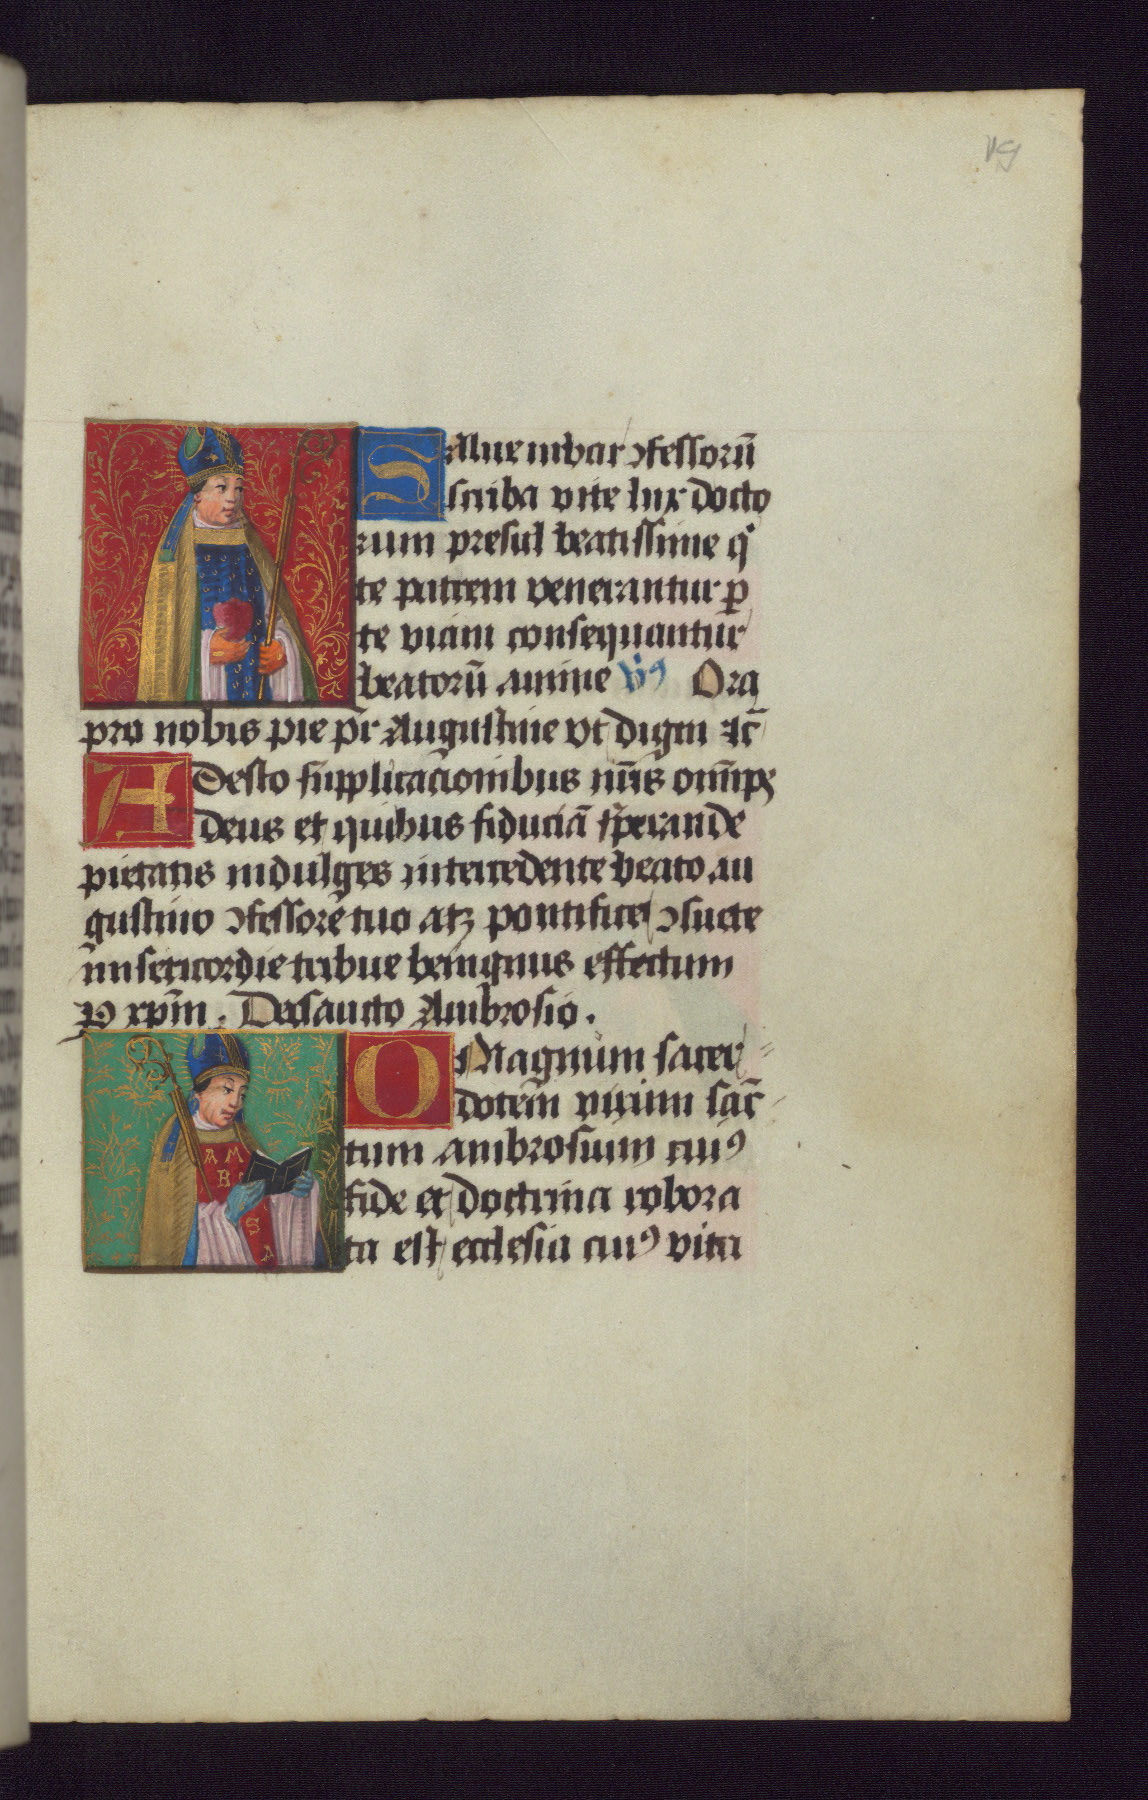 Salue iubar ↄfessorū
scriba vite lux docto
rum presul beatissime q̄
te patrem venerantur p̲
te viam consequantur
beatorū amine Vꝰ Ora
pro nobis pie pr̄ Augustine vt digni ⁊c̄
Adesto supplicacionibus nr̄is om̄ips
deus et quibus fiduciā sperande
pietatis indulges intercedente beato au
gustino ↄfessore tuo atqꝫ pontifice ↄsuete
misericordie tribue benignus effectum
P xp̄m. De sancto Ambrosio.
O Magnum sacer
dotem virum sāc
tum ambrosium cuiꝰ
fide et doctrina robora
ta est ecclesia cuiꝰ vita
AM
B
S
A